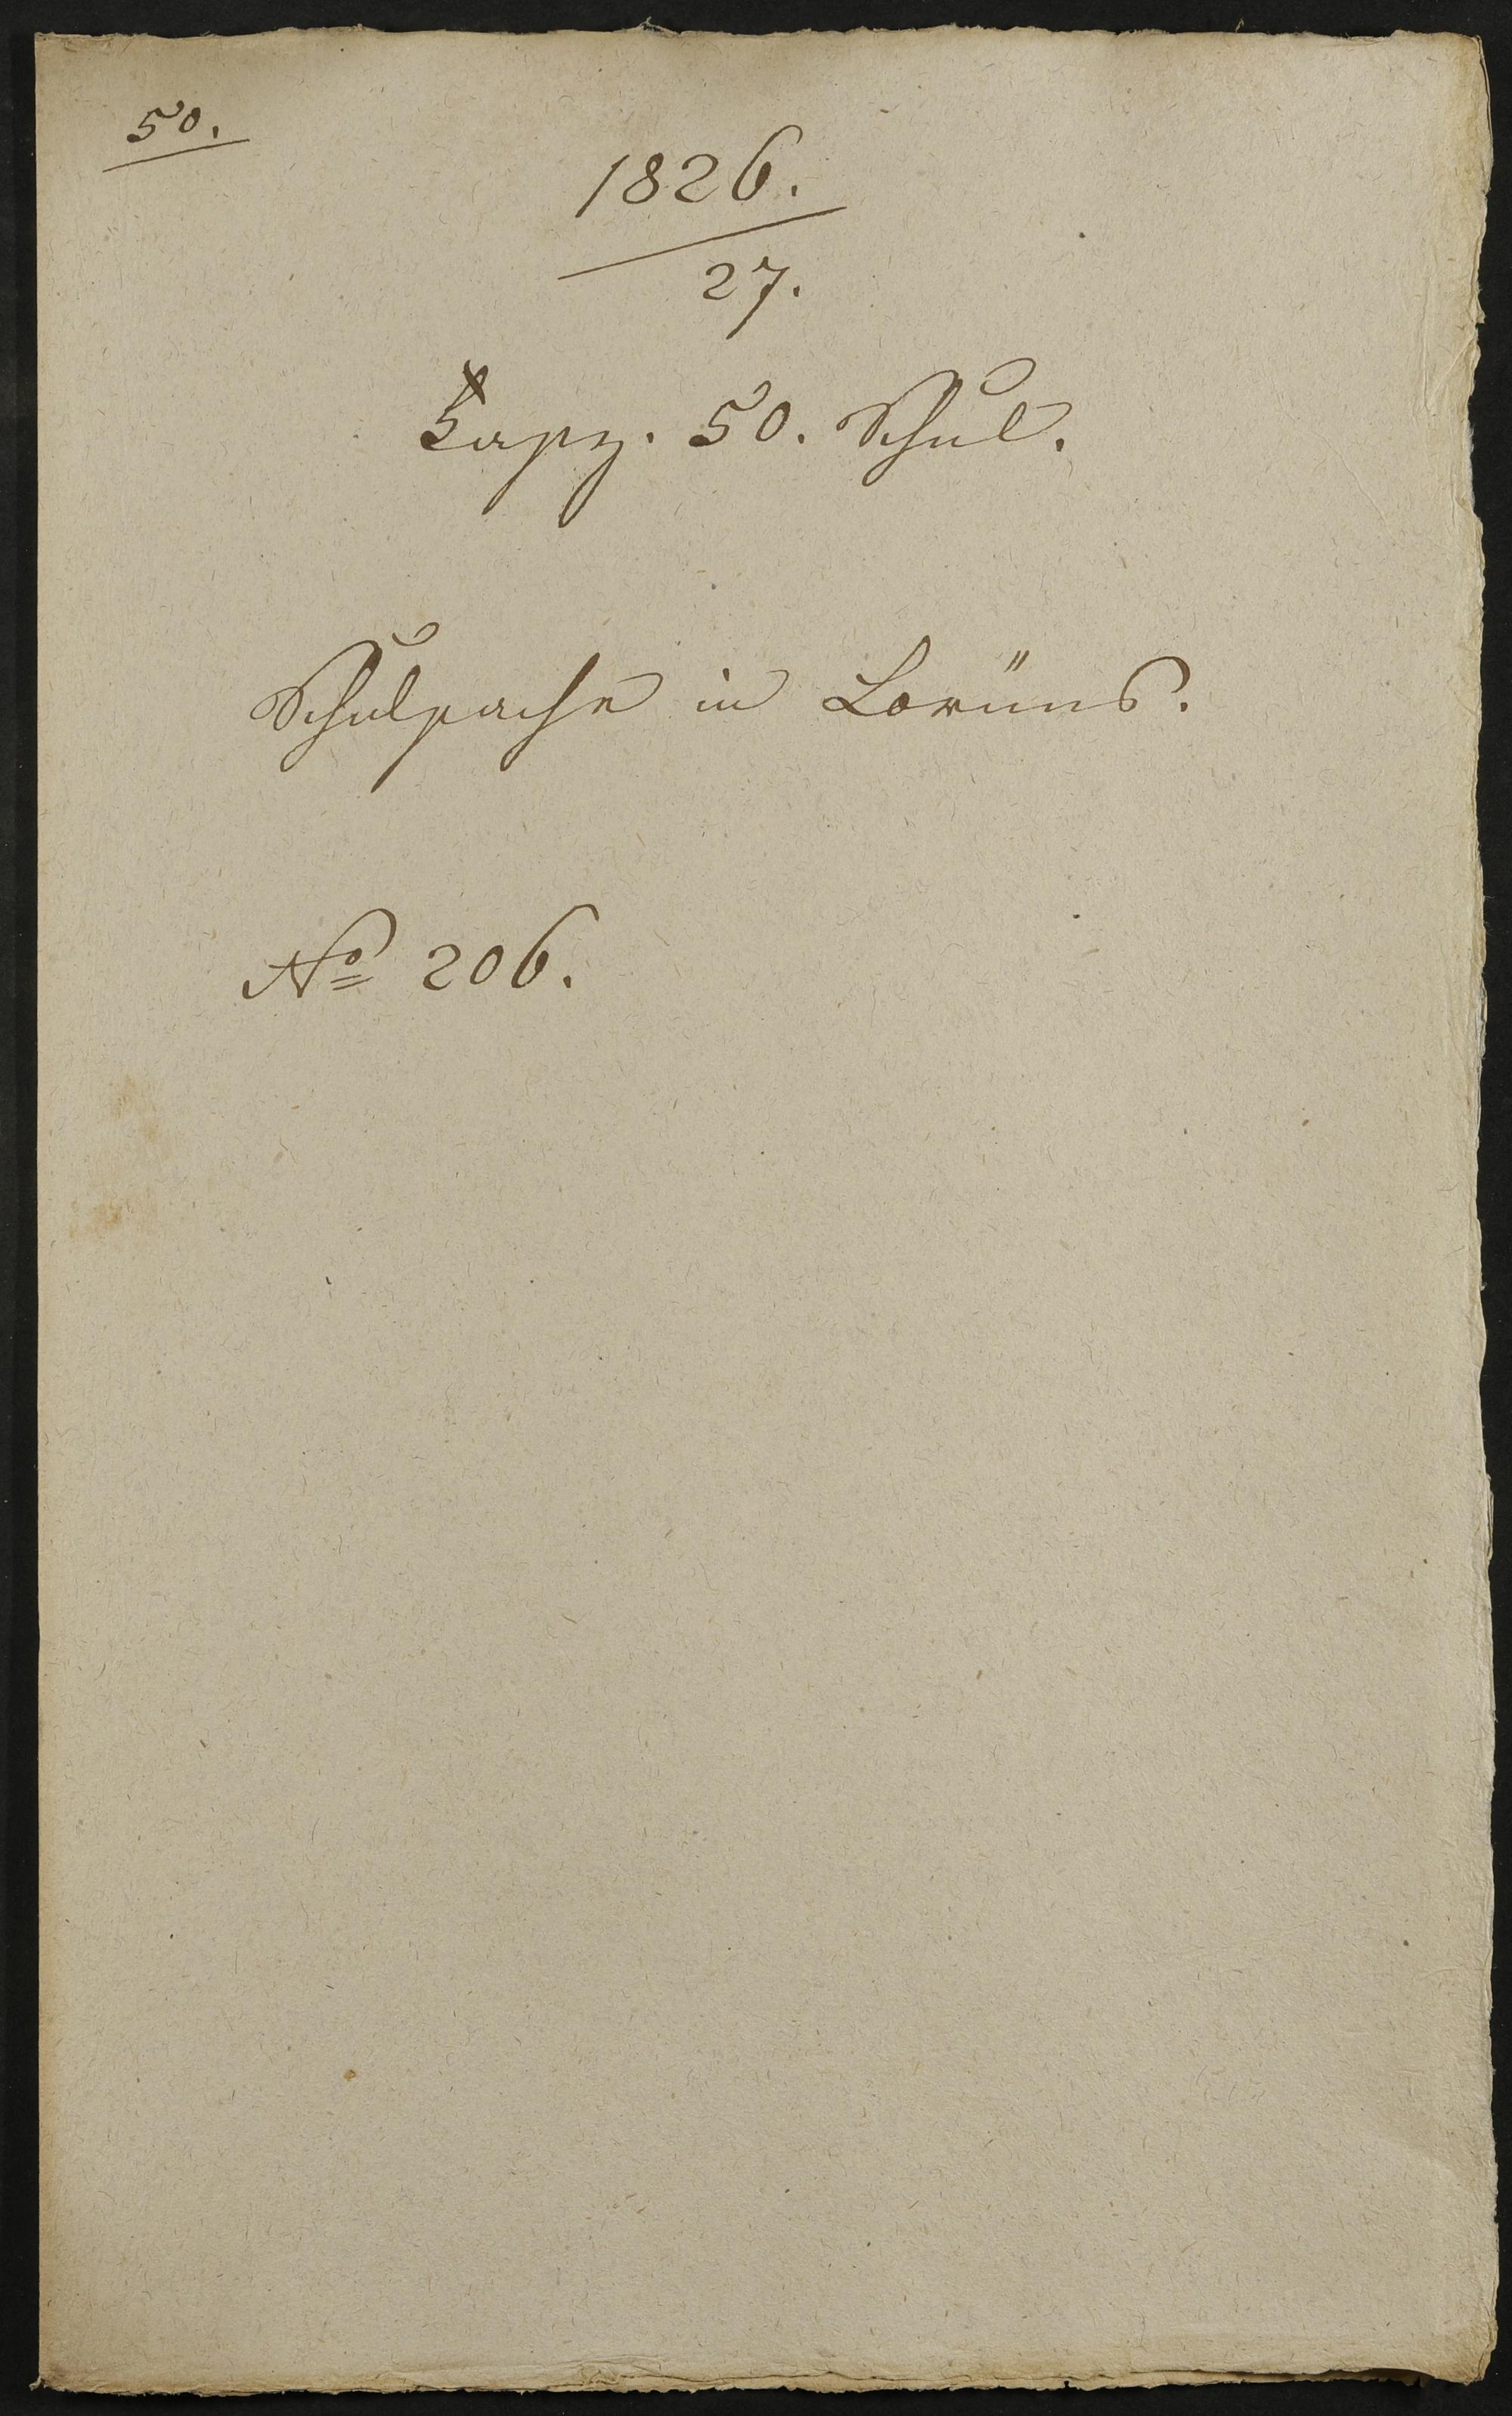 50.
1826.
27.
Fasz. 50. Schul.
Schulsache in Lorüns.
No 206.